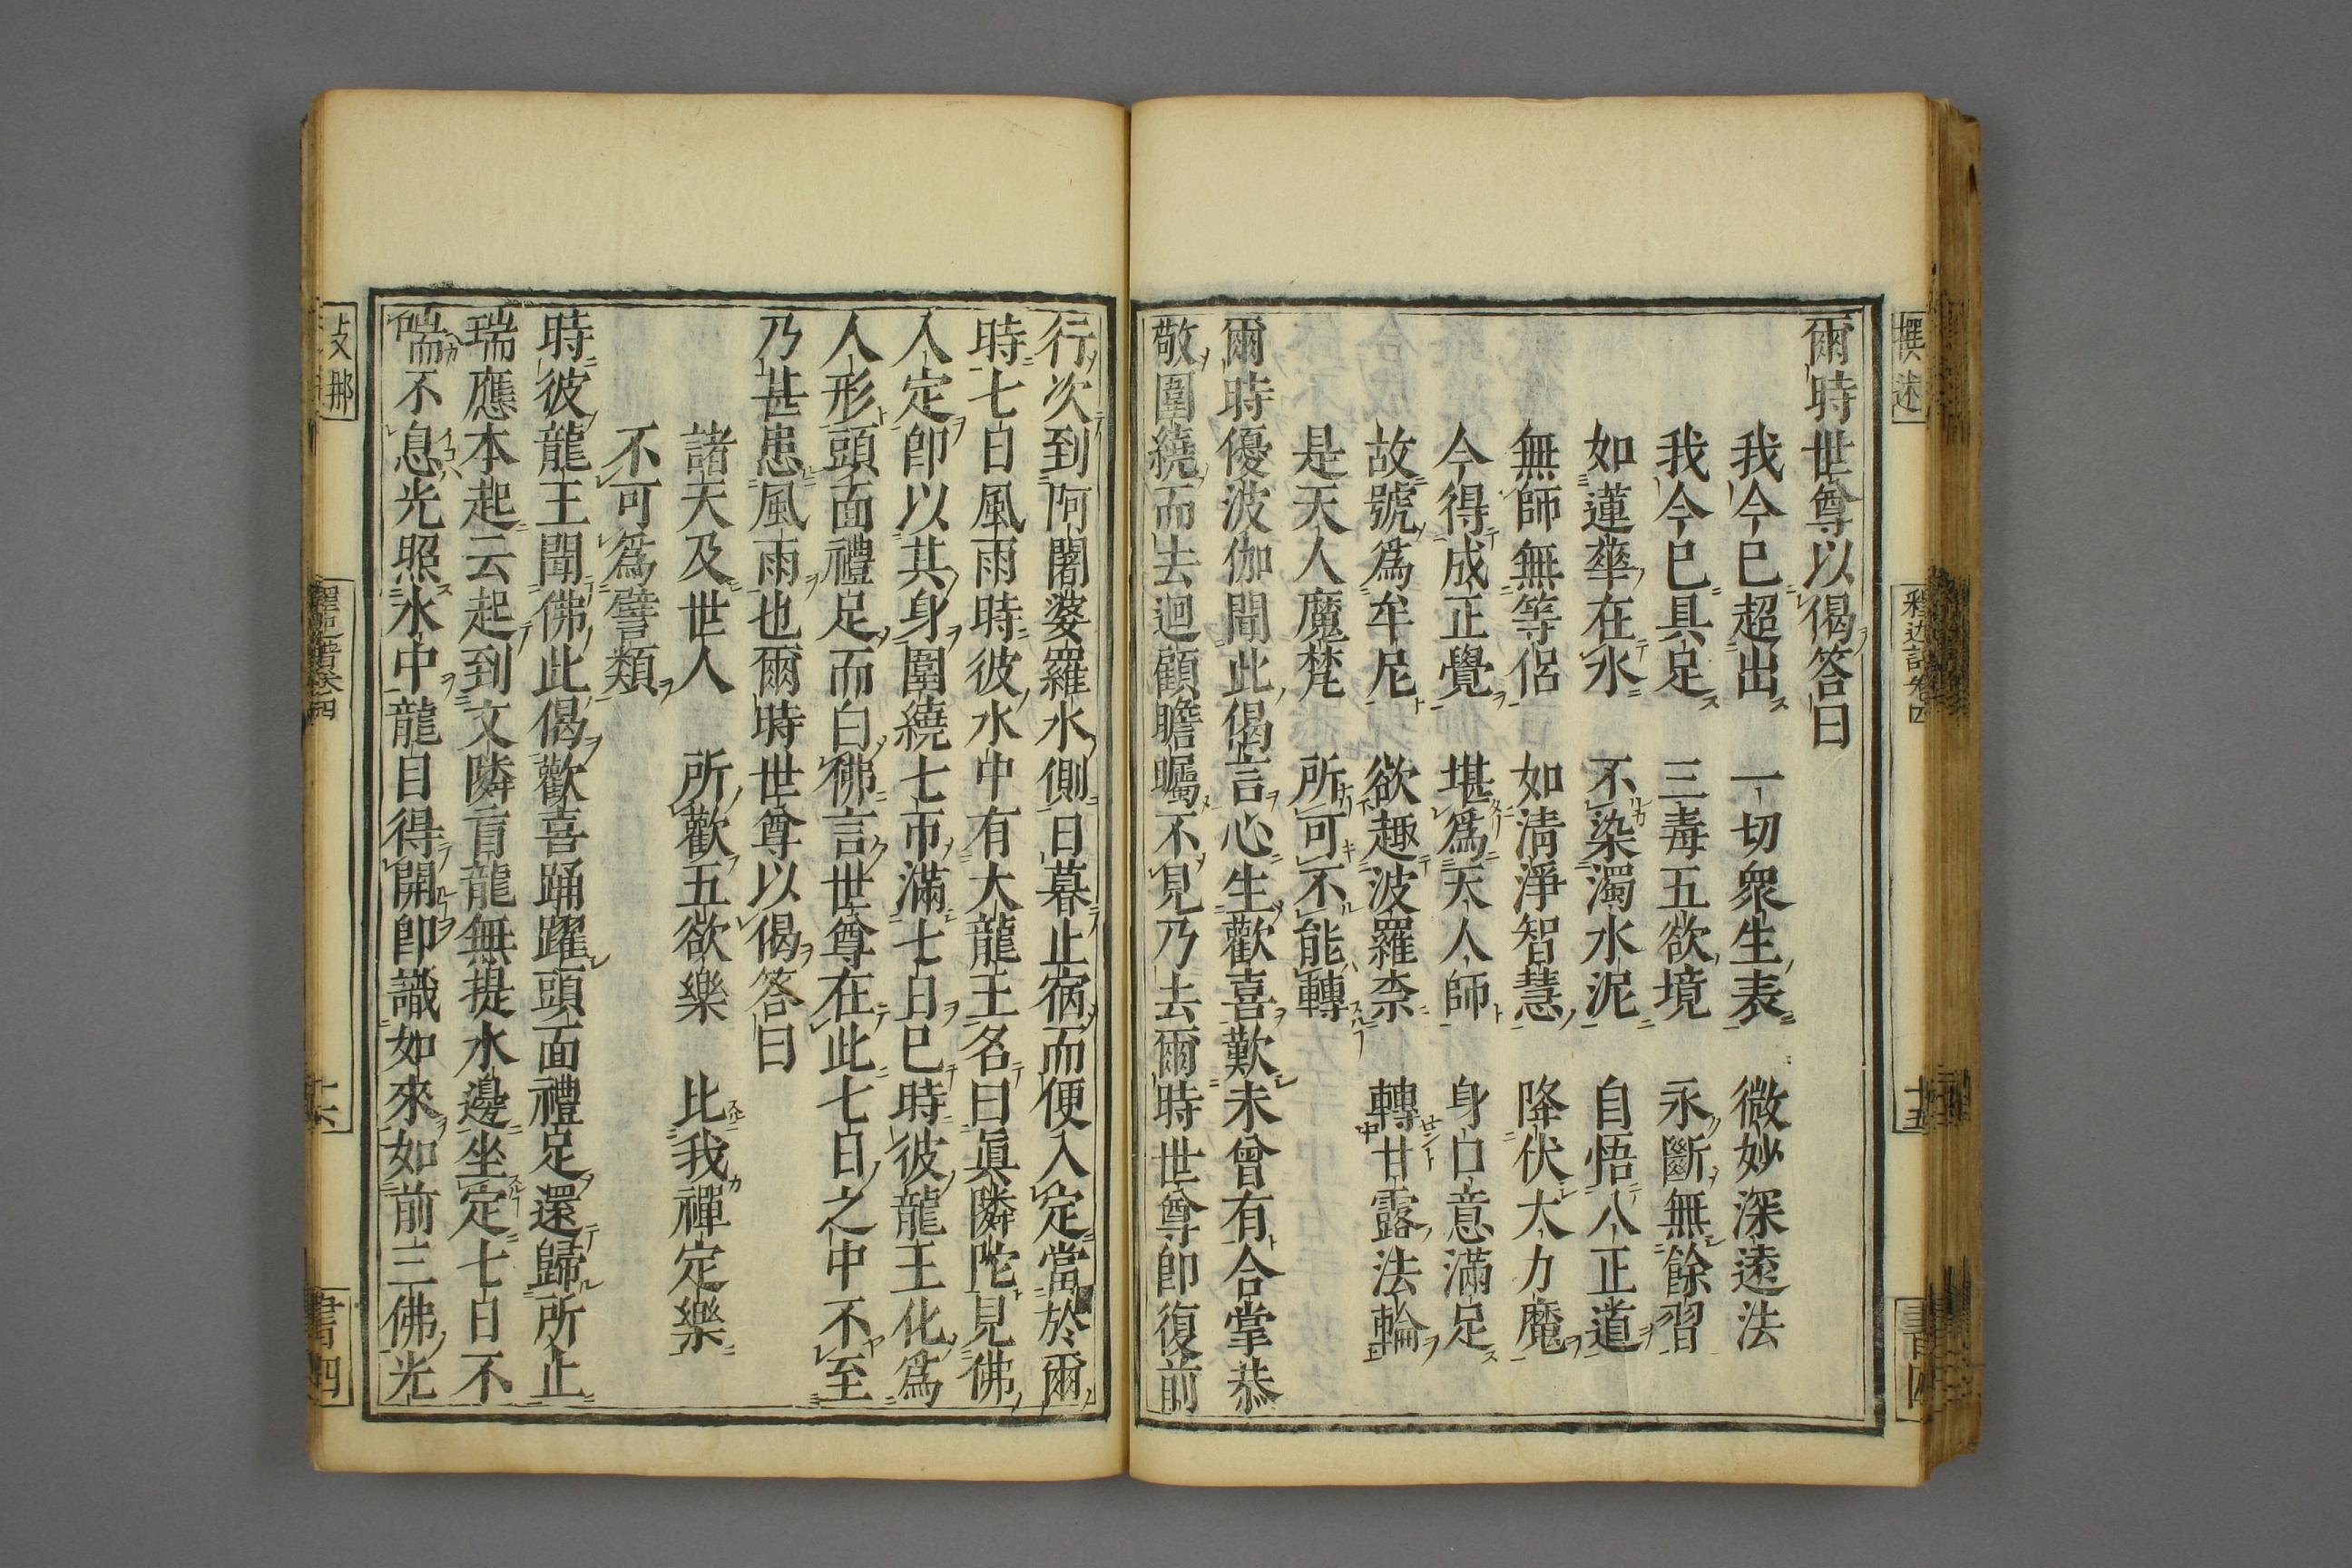 撰述
爾時世尊以偈答曰
我今已超出 一切衆生表 微妙深遠法
我今已具足 三毒五欲境 永斷無餘習
如蓮華在水 不染濁水泥 自悟八正道
無師無等侶 如清淨智慧 降伏大力魔
今得成正覺 堪爲天人師 身口意滿足
故號爲牟尼 欲趣波羅柰 轉甘露法輪
是天人魔梵 所可不能轉
爾時優波伽聞此偈言心生歡喜歎未曾有合掌恭
敬圍繞而去迴顧瞻矚不見乃去爾時世尊即復前
十五
行次到阿闍婆羅水側日暮止宿而便入定當於爾
時七日風雨時彼水中有大龍王名曰眞隣陀見佛
入定即以其身圍繞七帀滿七日已時彼龍王化爲
人形頭面禮足而白佛言世尊在此七日之中不至
乃甚患風雨也爾時世尊以偈答曰
諸天及世人 所歡五欲樂 比我禪定樂
不可爲譬類
時彼龍王聞佛此偈歡喜踊躍頭面禮足還歸所止
瑞應本起云起到文隣盲龍無提水邊坐定七日不
喘不息光照水中龍目得開即識如來如前三佛光
卷四
十六
書四